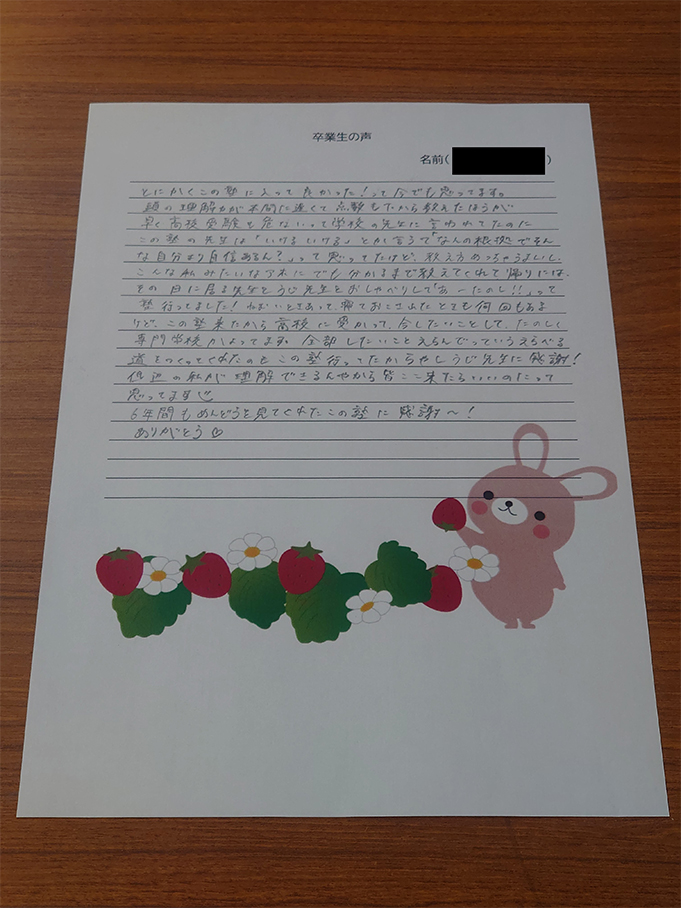 卒業生の声
名前( )
とにかくこの塾に入って良かった!って今でも思ってます。
頭の理解力が本間に遅くて点数も
早く高校受験も危ないって学校の先生に言われてたのに
この塾の先生は「いけるいける」とか言うて「なんの根拠でそん
な自分より自信あるん?」って思ってたけど、教え方めっちゃうまいし、
こんな私みたいなアホにでも分かるまで教えてくれて帰りには、
その日に居る先生とうじ先生とおしゃべりして「あーたのし!!」って
塾行ってました!ねむいときあって、寝ておこされたことも何回もある
けど、この塾来たから高校に受かって、今したいことして、たのしく
専門学校かよってます。全部したいことえらんでっていうえらべる
道をつくってくれたのもこの塾行ってたからやしうじ先生に感謝!
低辺の私が理解できるんやから皆ここ来たらいいのたって
思ってます
6年間もめんどうを見てくれたこの塾に感謝〜!
ありがとう♡